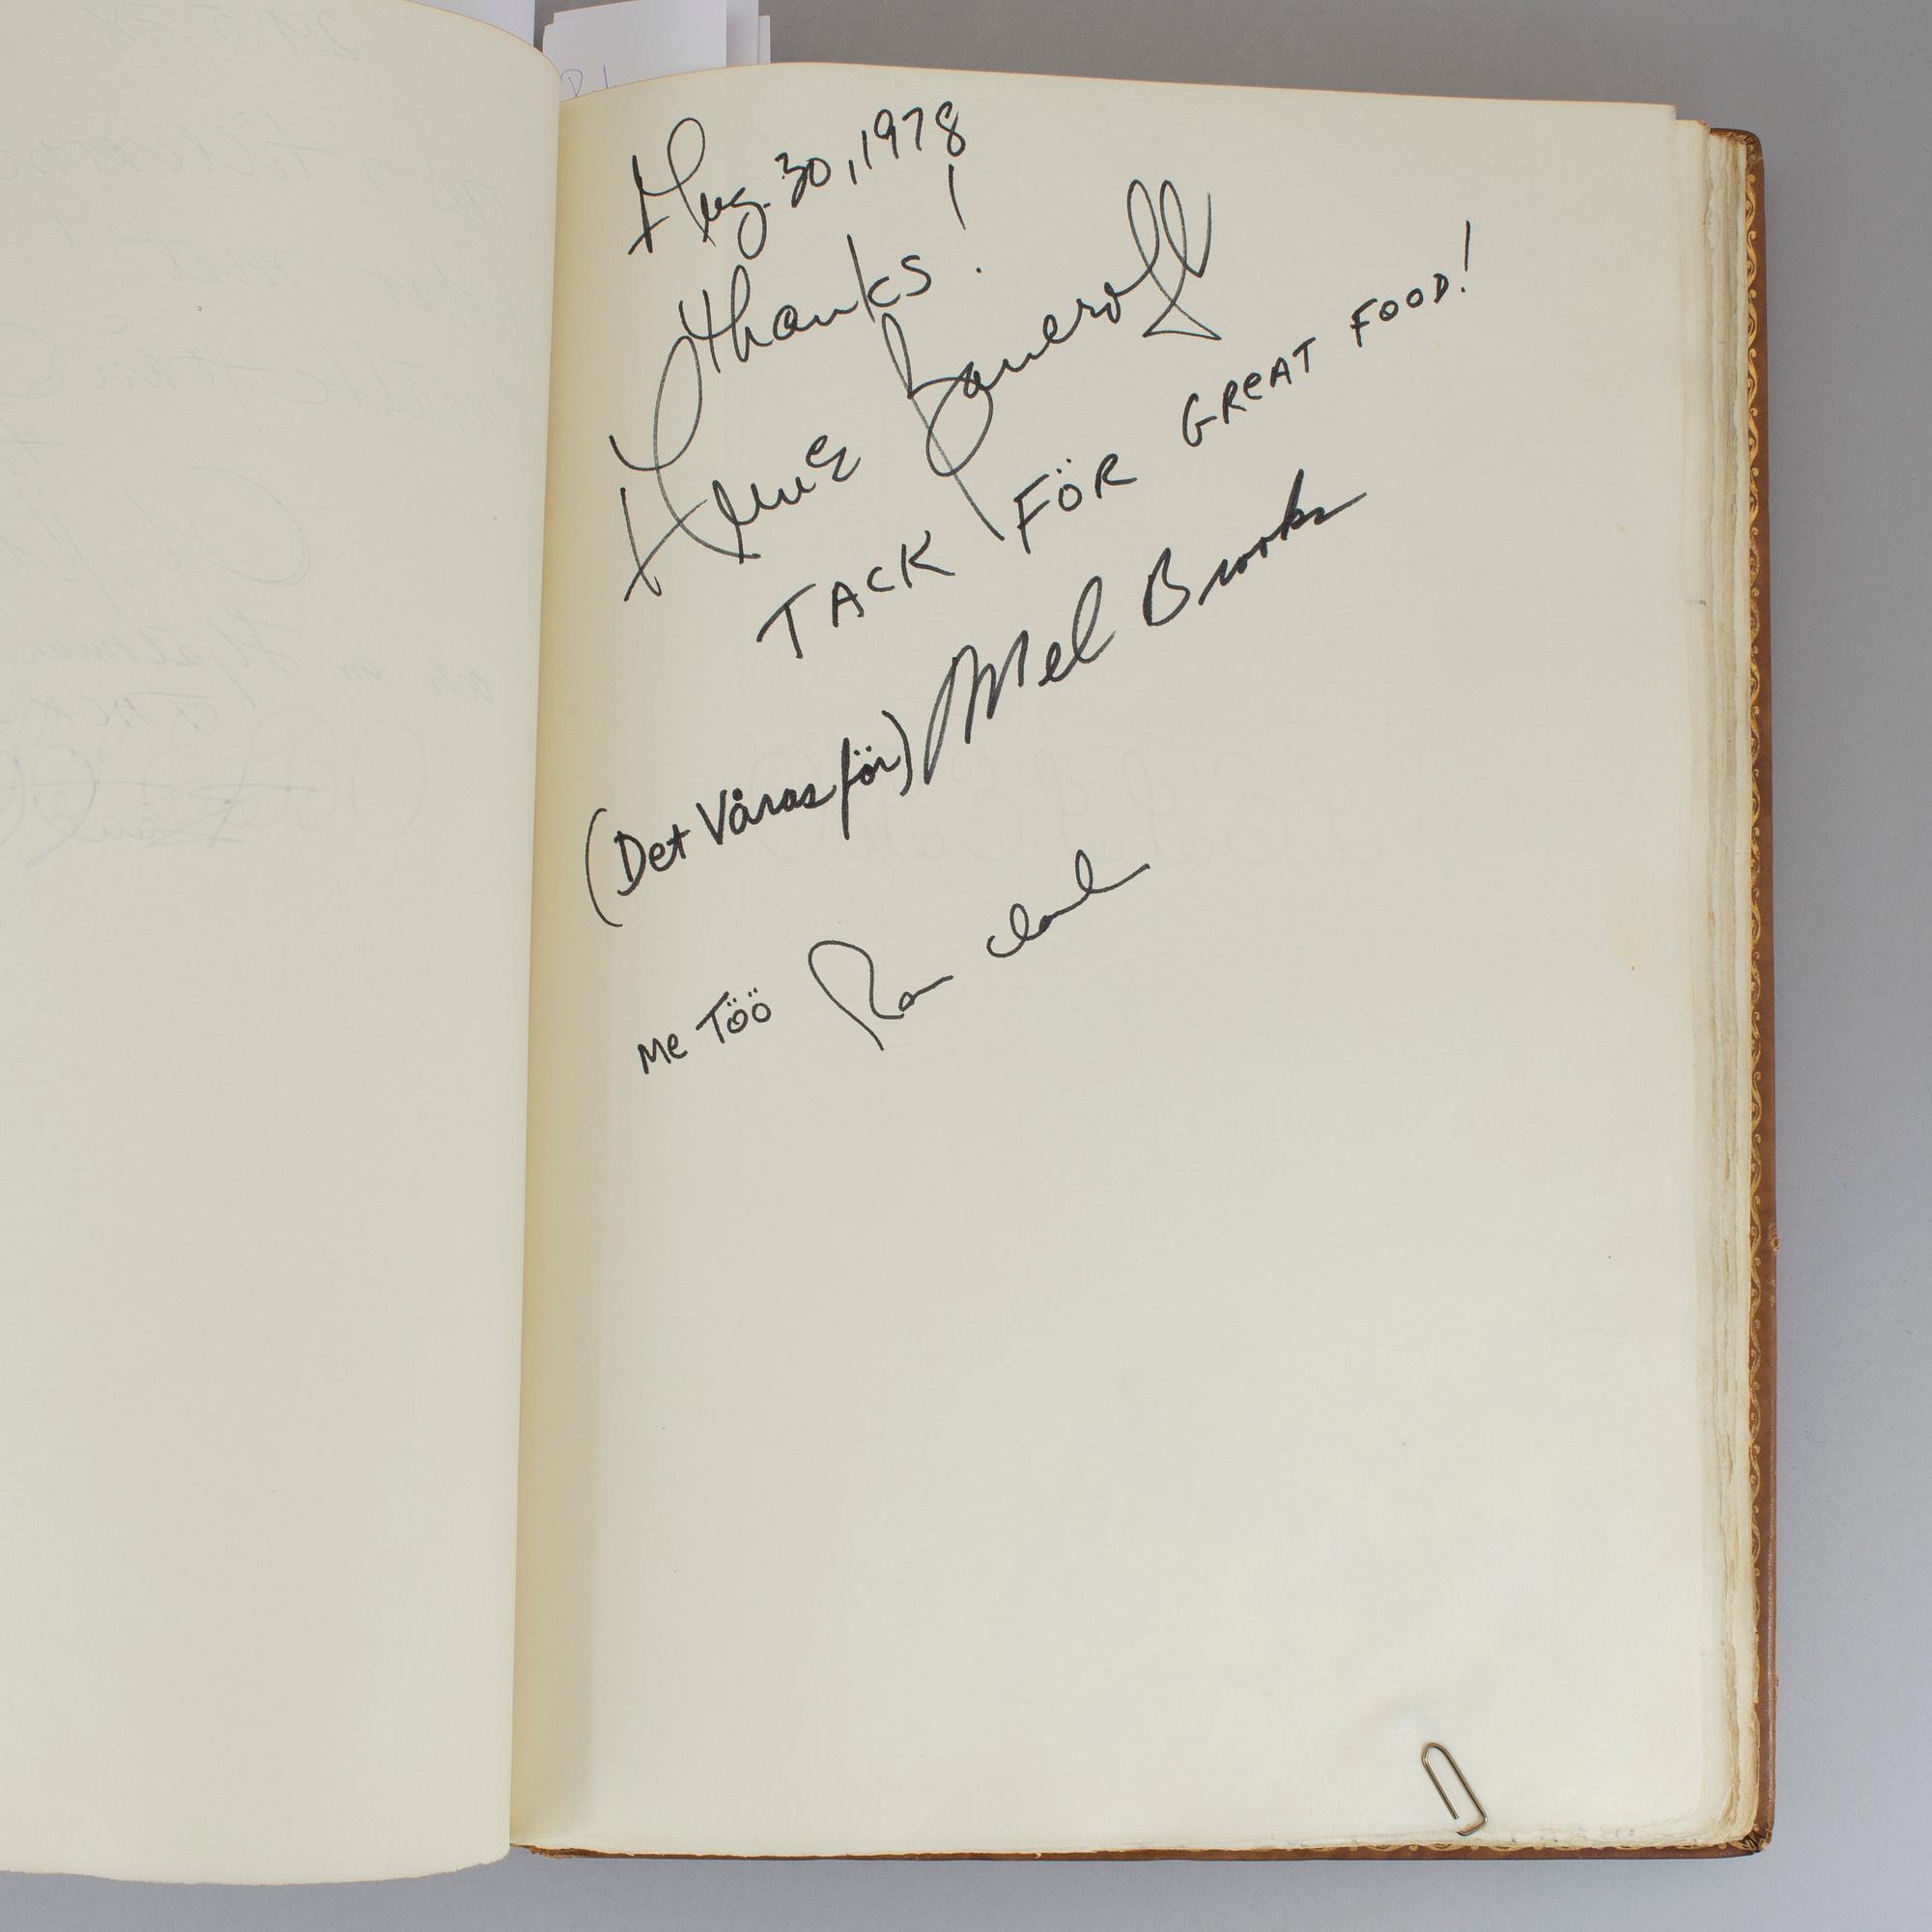 Aug. 30, 1978
Thanks!
Anne Bancroft
TACK FÖR GREAT FOOD!
(Det Våras för) Mel Brooks
Me TÖÖ Ron